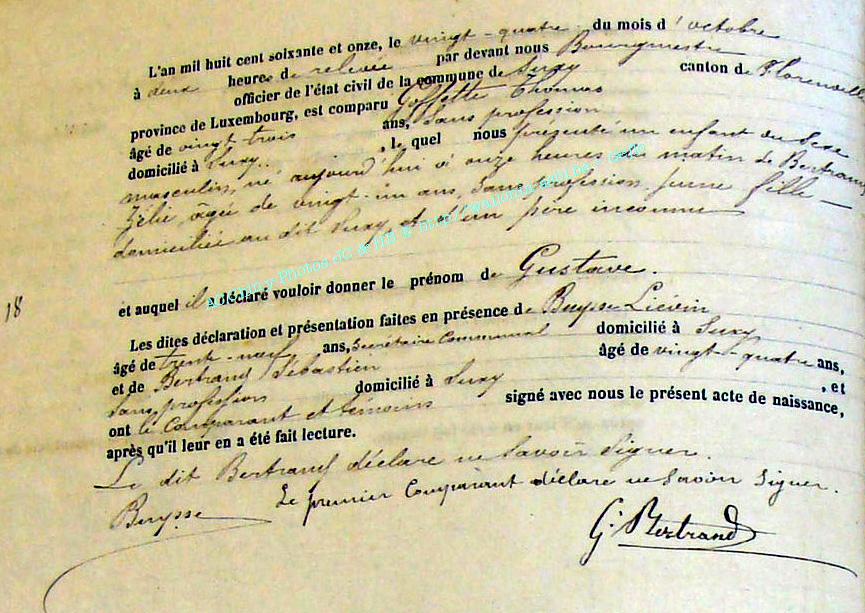 L'an mil huit cent soixante et onze, le vingt-quatre du mois d'octobre
à deux heures de relevée par devant nous Bourgmestre
officier de l'état civil de la commune de Suxy canton de Florenville
province de Luxembourg, est comparu Goffette Thomas
âgé de vingt-trois ans, sans profession
domicilié à Suxy, le quel nous présenté un enfant du sexe
masculin, né aujourd'hui à onze heures du matin de Bertrand
Zélie, âgée de vingt-un ans, sans profession jeune fille
domiciliée au dit Suxy, et d'un père inconnu
et auquel il déclaré vouloir donner le prénom de Gustave.
18
Les dites déclaration et présentation faites en présence de Buysse Liévin
âgé de trente-neuf ans, Secrétaire Communal domicilié à Suxy
et de Bertrand Sébastien âgé de vingt-quatre ans,
sans profession domicilié à Suxy, et
ont le Comparant et témoins signé avec nous le présent acte de naissance,
après qu'il leur en a été fait lecture.
Le dit Bertrand déclare ne savoir signer.
Le premier Comparant déclare ne savoir signer.
Buysse
G. Bertrand